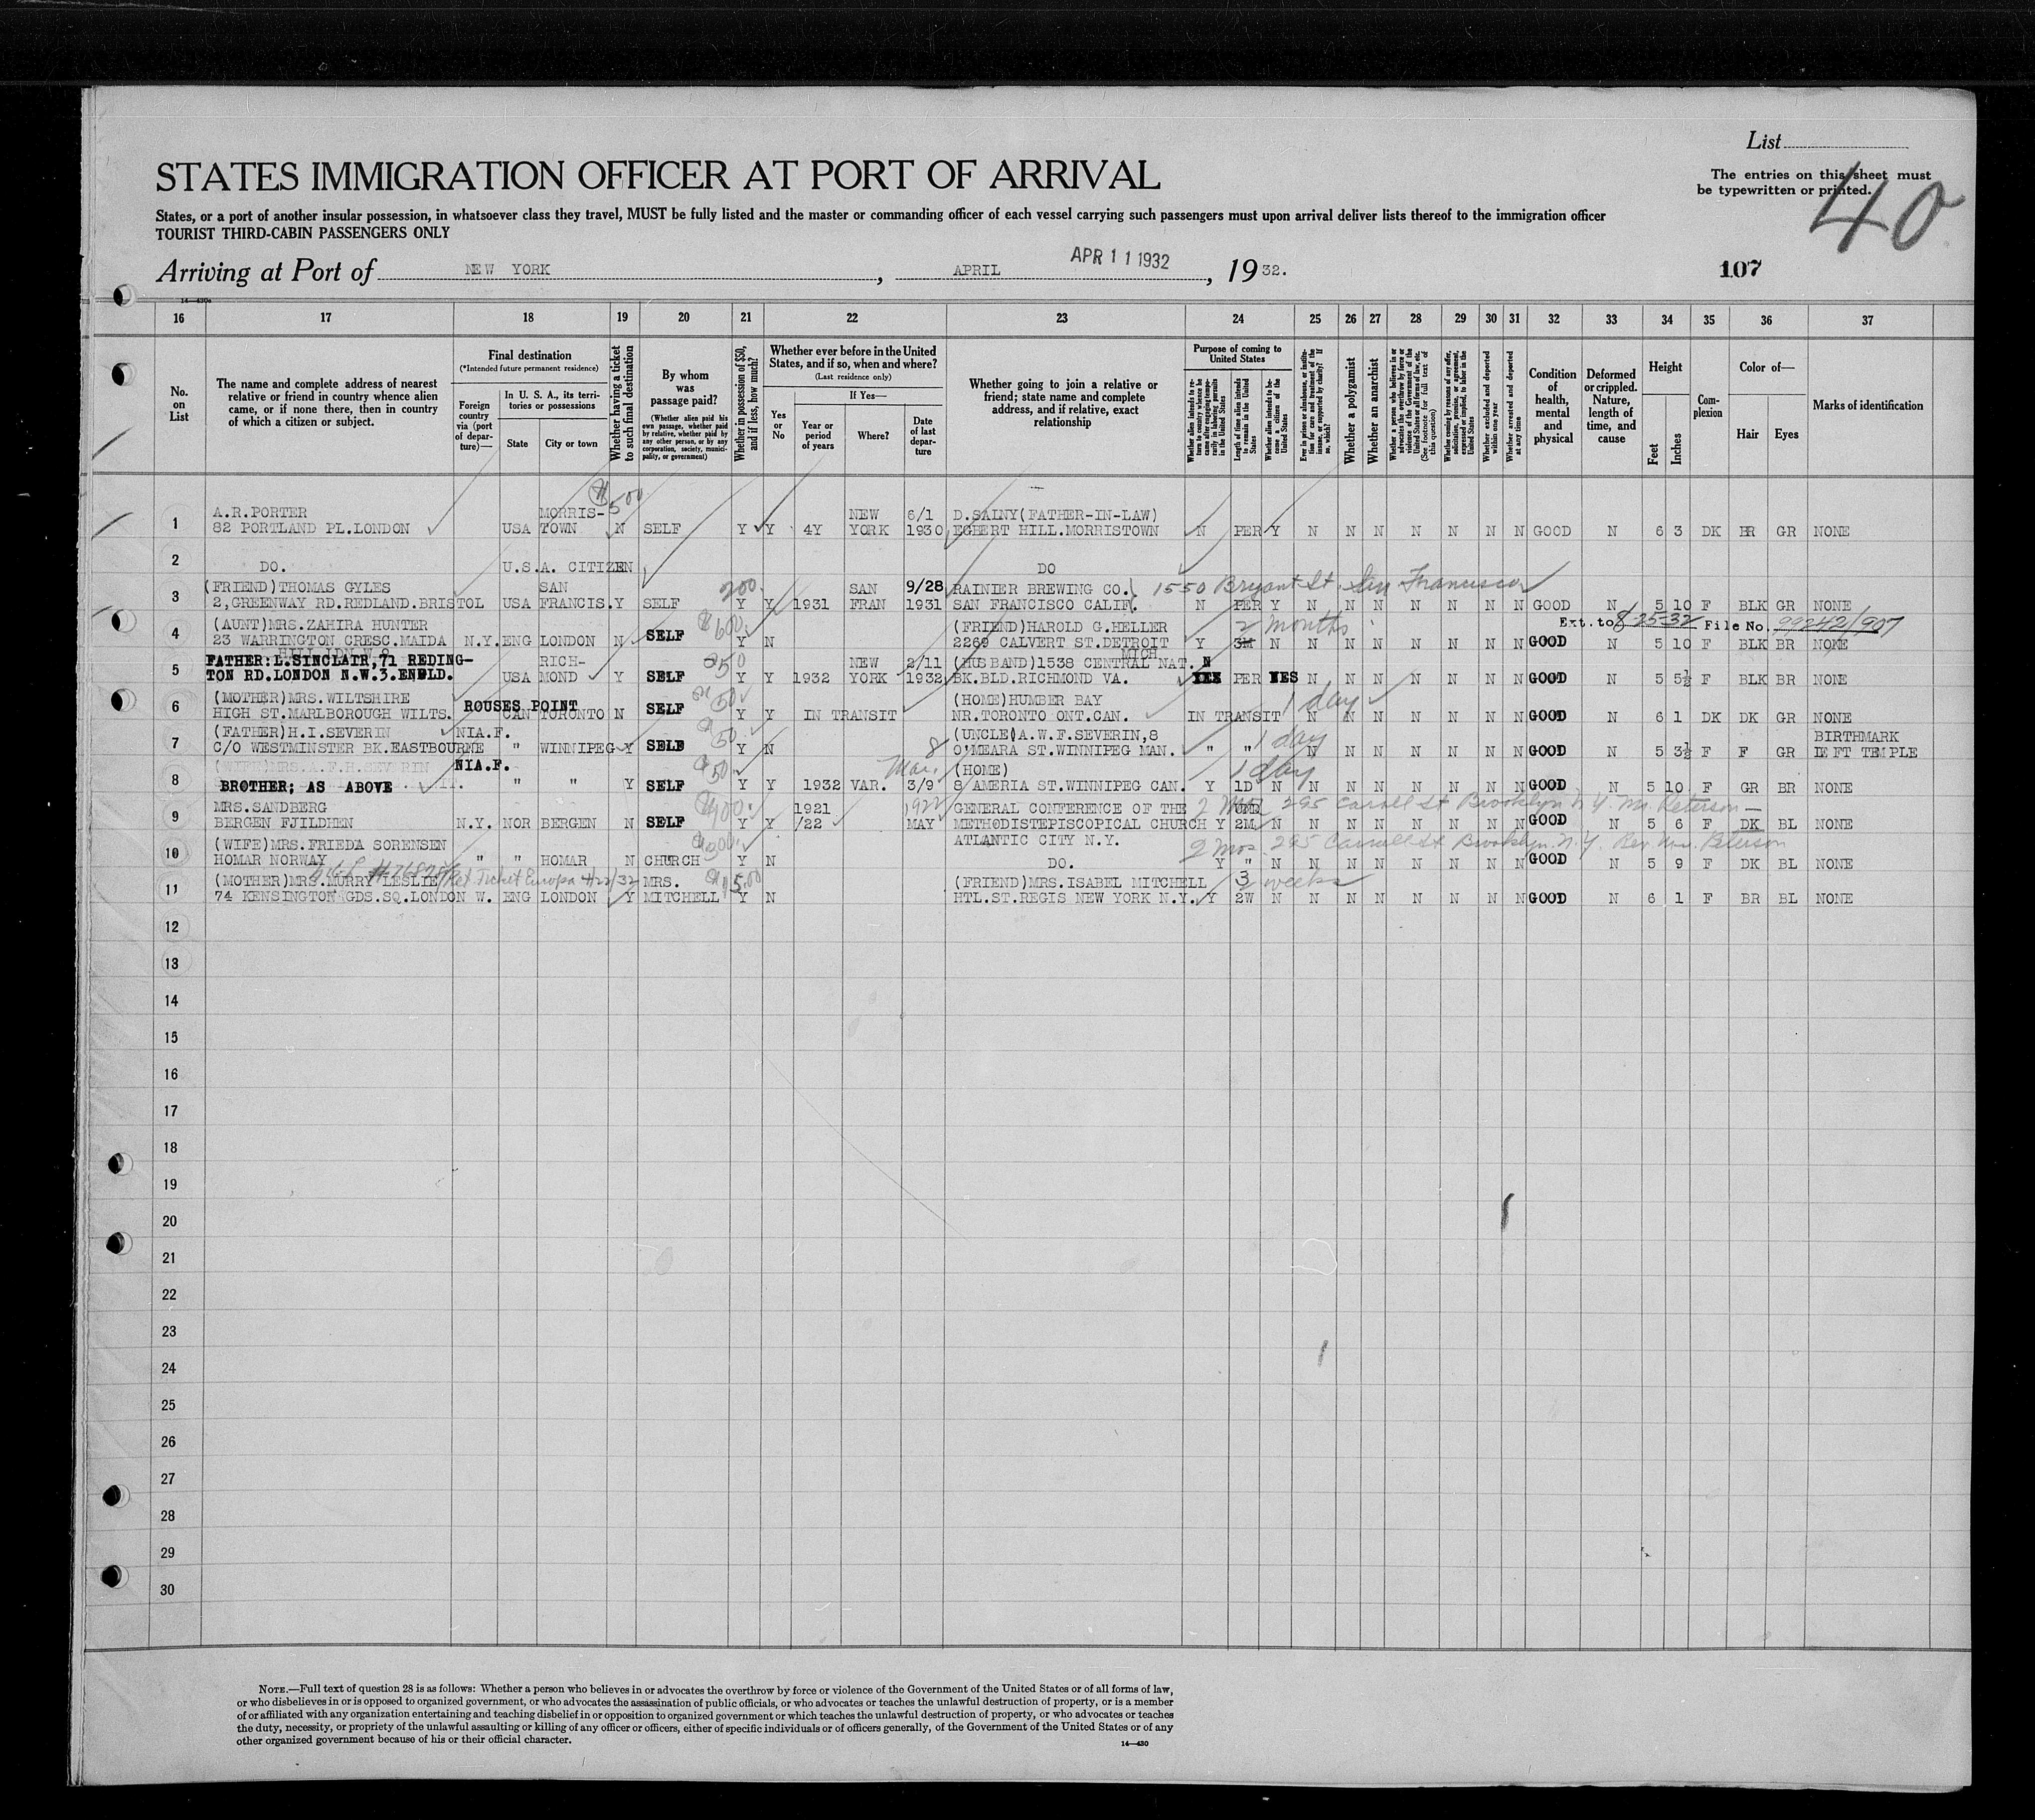 List
STATES IMMIGRATION OFFICER AT PORT OF ARRIVAL
The entries on this sheet must
be typewritten or printed.
40
States, or a port of another insular possession, in whatsoever class they travel, MUST be fully listed and the master or commanding officer of each vessel carrying such passengers must upon arrival deliver lists thereof to the immigration officer
TOURIST THIRD-CABIN PASSENGERS ONLY
Arriving at Port of NEW YORK, APRIL APR 11 1932, 1932.
107
14—430
16 17 18 19 20 21 22 23 24 25 26 27 28 29 30 31 32 33 34 35 36 37
No. on List
The name and complete address of nearest relative or friend in country whence alien came, or if none there, then in country of which a citizen or subject.
Final destination
(*Intended future permanent residence)
Foreign country via (port of departure)—
In U. S. A., its territories or possessions
State
City or town
Whether having a ticket to such final destination
By whom was passage paid?
(Whether alien paid his own passage, whether paid by relative, whether paid by any other person, or by any corporation, society, municipality, or government)
Whether in possession of $50, and if less, how much?
Whether ever before in the United States, and if so, when and where?
(Last residence only)
Yes or No
If Yes—
Year or period of years
Where?
Date of last departure
Whether going to join a relative or friend; state name and complete address, and if relative, exact relationship
Purpose of coming to United States
Whether alien intends to return to country whence he came after engaging temporarily in laboring pursuits in the United States
Length of time alien intends to remain in the United States
Whether alien intends to become a citizen of the United States
Ever in prison or almshouse, or institution for care and treatment of the insane, or supported by charity? If so, which?
Whether a polygamist
Whether an anarchist
Whether a person who believes in or advocates the overthrow by force or violence of the Government of the United States or all forms of law, etc. (See footnote for full text of this question)
Whether coming by reasons of any offer, solicitation, promise, or agreement, expressed or implied, to labor in the United States
Whether excluded and deported within one year
Whether arrested and deported at any time
Condition of health, mental and physical
Deformed or crippled. Nature, length of time, and cause
Height
Feet
Inches
Complexion
Color of—
Hair
Eyes
Marks of identification
$500
A.R.PORTER MORRIS- NEW 6/1 D.SALNY(FATHER-IN-LAW)
1 82 PORTLAND PL.LONDON USA TOWN N SELF Y Y 4Y YORK 1930 EGBERT HILL.MORRISTOWN N PER Y N N N N N N N GOOD N 6 3 DK BR GR NONE
2 DO. U.S.A. CITIZEN DO
(FRIEND)THOMAS GYLES SAN 200. SAN 9/28 RAINIER BREWING CO. 1550 Bryant St. San Francisco
3 2,GREENWAY RD.REDLAND.BRISTOL USA FRANCIS. Y SELF Y Y 1931 FRAN 1931 SAN FRANCISCO CALIF. N PER Y N N N N N N N GOOD N 5 10 F BLK GR NONE
(AUNT)MRS.ZAHIRA HUNTER $600 (FRIEND)HAROLD G.HELLER 2 months Ext. to 8-25-32 File No. 99242/907
4 23 WARRINGTON CRESC.MAIDA N.Y. ENG LONDON N SELF Y N 2269 CALVERT ST.DETROIT Y 3M N N N N N N N N GOOD N 5 10 F BLK BR NONE
MICH
FATHER:L.SINCLAIR,71 REDING- RICH- $50 NEW 2/11 (HUSBAND)1538 CENTRAL NAT. N
5 TON RD.LONDON N.W.3.ENGLD. USA MOND Y SELF Y Y 1932 YORK 1932 BK.BLD.RICHMOND VA. YES PER YES N N N N N N N GOOD N 5 5½ F BLK BR NONE
(MOTHER)MRS.WILTSHIRE ROUSES POINT $50 (HOME)HUMBER BAY 1 day
6 HIGH ST.MARLBOROUGH WILTS. CAN TORONTO N SELF Y Y IN TRANSIT NR.TORONTO ONT.CAN. IN TRANSIT N N N N N N N GOOD N 6 1 DK DK GR NONE
(FATHER)H.I.SEVERIN NIA.F. $50. (UNCLE)A.W.F.SEVERIN,8 1 day BIRTHMARK
7 C/O WESTMINSTER BK.EASTBOURNE " WINNIPEG Y SELF Y N O'MEARA ST.WINNIPEG MAN. " " N N N N N N N GOOD N 5 3½ F F GR LEFT TEMPLE
(WIFE)MRS.A.F.H.SEVERIN NIA.F. $50 Mar. 8 (HOME) 1 day
8 BROTHER; AS ABOVE " " Y SELF Y Y 1932 VAR. 3/9 8 AMERIA ST.WINNIPEG CAN. Y 1D N N N N N N N N GOOD N 5 10 F GR BR NONE
MRS.SANDBERG $400. 1921 1922 GENERAL CONFERENCE OF THE 2 Mos 295 Carroll St Brooklyn N.Y. Mr. Peterson
9 BERGEN FJILDHEN N.Y. NOR BERGEN N SELF Y Y /22 MAY METHODISTEPISCOPICAL CHURCH Y 2M N N N N N N N N GOOD N 5 6 F DK BL NONE
(WIFE)MRS.FRIEDA SORENSEN $300. ATLANTIC CITY N.Y. 2 mos. 295 Carroll St Brooklyn. N.Y. Rev. Mr. Peterson
10 HOMAR NORWAY " " HOMAR N CHURCH Y N DO. Y " N N N N N N N N GOOD N 5 9 F DK BL NONE
#76828 Ret. Ticket Europa 4/22/32
(MOTHER)MRS.MURRY LESLIE MRS. $15.00 (FRIEND)MRS.ISABEL MITCHELL 3 weeks
11 74 KENSINGTON GDS.SQ.LONDON W. ENG LONDON Y MITCHELL Y N HTL.ST.REGIS NEW YORK N.Y. Y 2W N N N N N N N N GOOD N 6 1 F BR BL NONE
12
13
14
15
16
17
18
19
20
21
22
23
24
25
26
27
28
29
30
NOTE.—Full text of question 28 is as follows: Whether a person who believes in or advocates the overthrow by force or violence of the Government of the United States or of all forms of law,
or who disbelieves in or is opposed to organized government, or who advocates the assassination of public officials, or who advocates or teaches the unlawful destruction of property, or is a member
of or affiliated with any organization entertaining and teaching disbelief in or opposition to organized government or which teaches the unlawful destruction of property, or who advocates or teaches
the duty, necessity, or propriety of the unlawful assaulting or killing of any officer or officers, either of specific individuals or of officers generally, of the Government of the United States or of any
other organized government because of his or their official character.
14—430